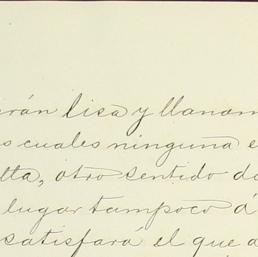 rán lisa y llanam
s cuales ninguna e
lta, otro sentido de
lugar tampoco á
satisfará el que a